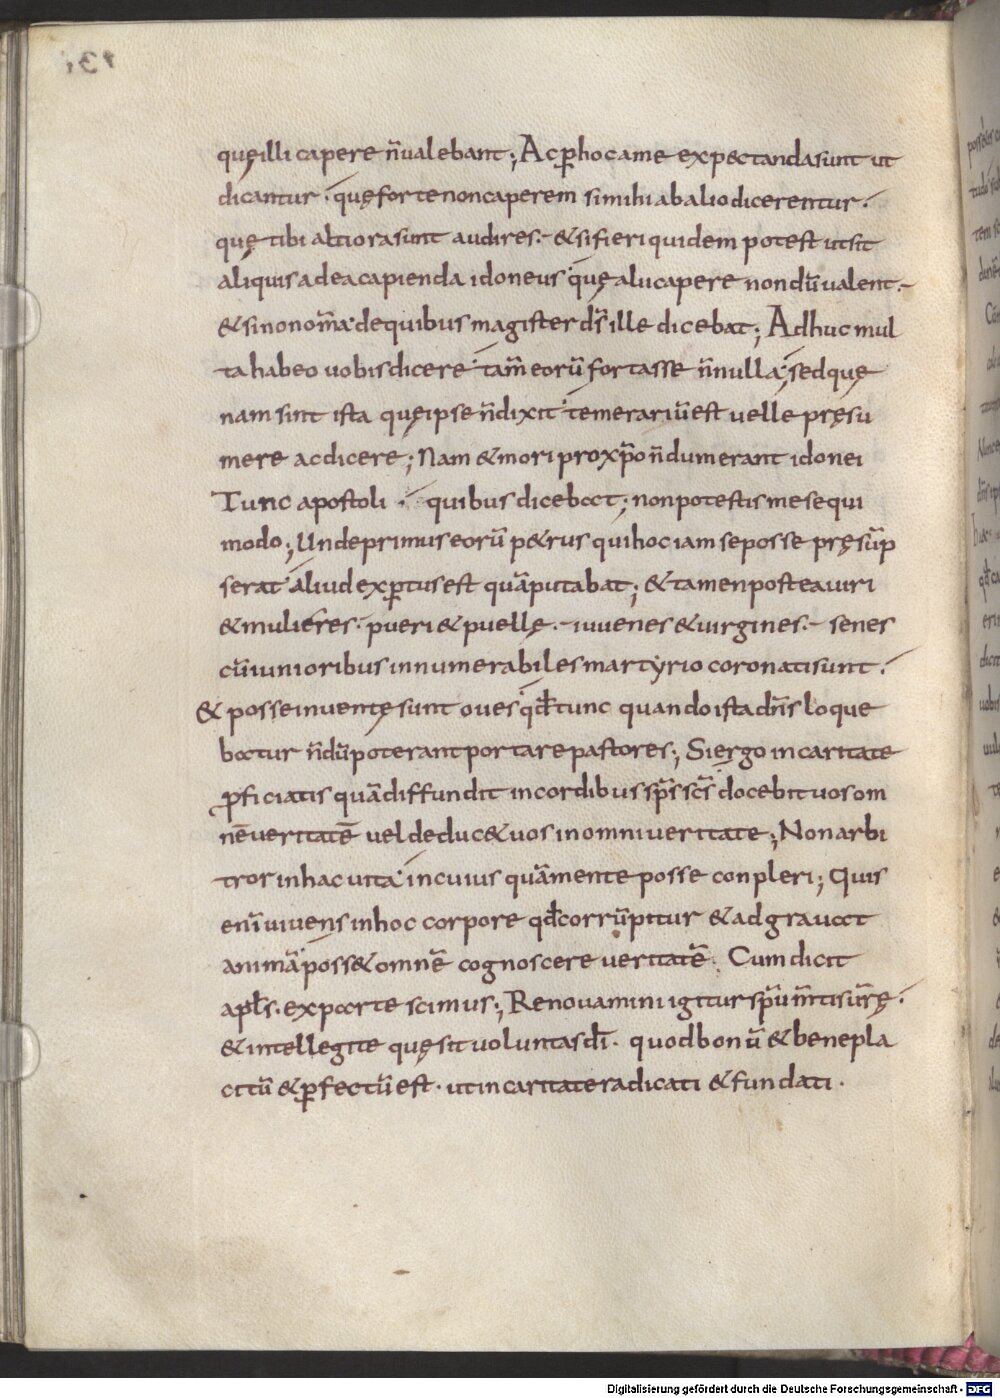 quęilli capere n̄ualebant; Acꝑhocame expectandasunt ut
dicantur · quęfortenoncaperem simihiabaliodicerentur ·
quę tibi altiorasunt audires ·- &sifieri quidem potest utsit
aliquisadeacapienda idoneus · quę alii capere nondūualent ·-
&sinonom̄a · dequibus magister dn̄s ille dicebat; Adhuc mul
ta habeo uobisdicere · tam̄ eorū fortasse n̄nulla; sedquę
nam sint ista quęipse n̄dixit · temerariūest uelle pręsu
mere acdicere; Nam &mori proxp̄o n̄dumerant idonei
Tunc apostoli · quibus dicebat; nonpotestis mesequi
modo; Undeprimus eorū p&rus quihoc iam seposse pręsūp
serat · aliud exꝑtusest quāputabat; &tamenposteauiri
&mulieres · pueri &puellę ·- iuuenes &uirgines ·- senes
cūiunioribus innumerabiles martyrio coronatisunt ·
& posseinuentęsunt oues qđtunc quandoista dn̄s loque
batur n̄dūpoterantportarepastores; Siergo incaritate
ꝓficiatis quādiffundit incordibus sp̄s sc̄s docebit uos om
nē ueritatē uel deduc& uos inomni ueritate; Nonarbi
tror inhac uita · incuius quāmente posse conpleri; Quis
enī uiuens inhoc corpore qđcorrūpitur &adgrauat
animā poss& omnē cognoscere ueritatē · Cum dicit
apłs · exparte scimus; Renouamini igitur sp̄um̄tisur̄ę ·
&intellegite quęsit uoluntasdī · quodbonū &benepla
citū &ꝑfectūest · utincaritateradicati &fundati ·
Digitalisierung gefördert durch die Deutsche Forschungsgemeinschaft - DFG